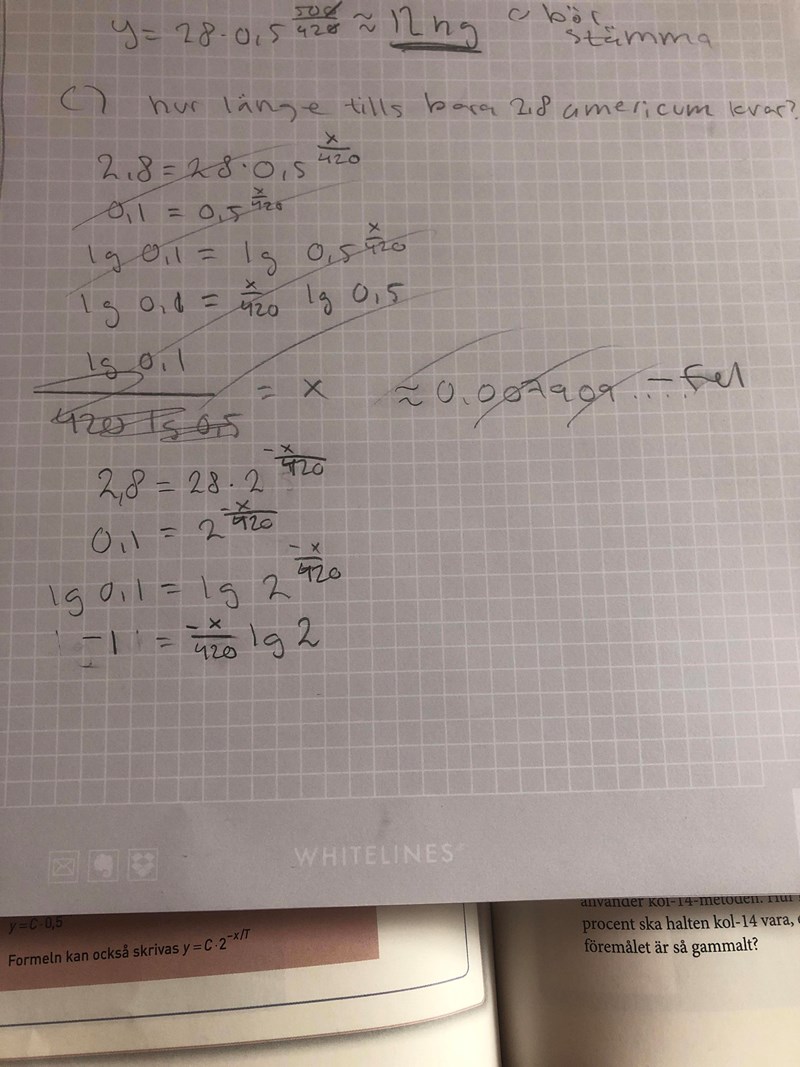 y = 28 · 0,5^(500/420) ≈ 12 ng ⊂ bör stämma
C) hur länge tills bara 2,8 americum kvar?
2,8 = 28 · 0,5^(x/420)
0,1 = 0,5^(x/420)
lg 0,1 = lg 0,5^(x/420)
lg 0,1 = x/420 lg 0,5
lg 0,1 / 420 lg 0,5 = x ≈ 0.007909... – fel
2,8 = 28 · 2^(-x/420)
0,1 = 2^(-x/420)
lg 0,1 = lg 2^(-x/420)
-1 = -x/420 lg 2
WHITELINES
y = C · 0,5
Formeln kan också skrivas y = C · 2^(-x/T)
använder kol-14-metoden. Hur
procent ska halten kol-14 vara,
föremålet är så gammalt?